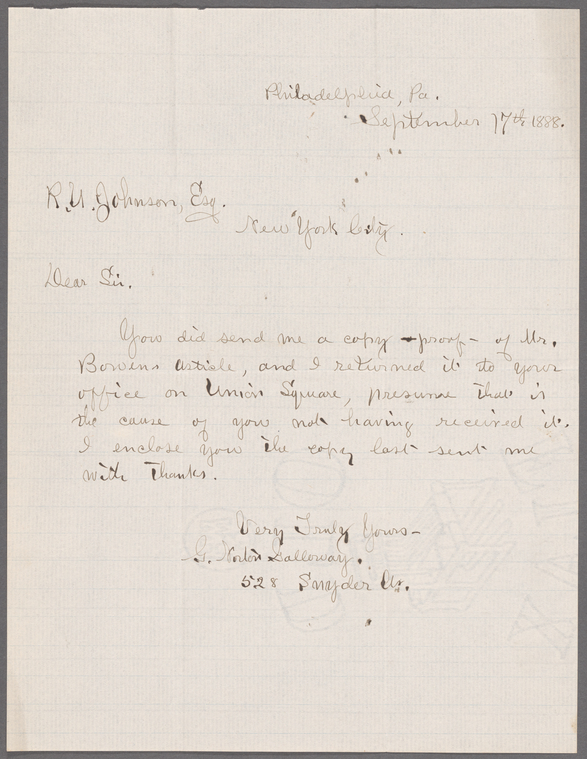 Philadelphia, Pa.
September 17th 1888.
R. U. Johnson, Esq.
New York City.
Dear Sir.
You did send me a copy -proof- of Mr.
Bowens article, and I returned it to your
office on Union Square, presume that is
the cause of you not having received it.
I enclose you the copy last sent me
with thanks.
Very Truly Yours-
G. Norton Galloway.
528 Snyder Av.